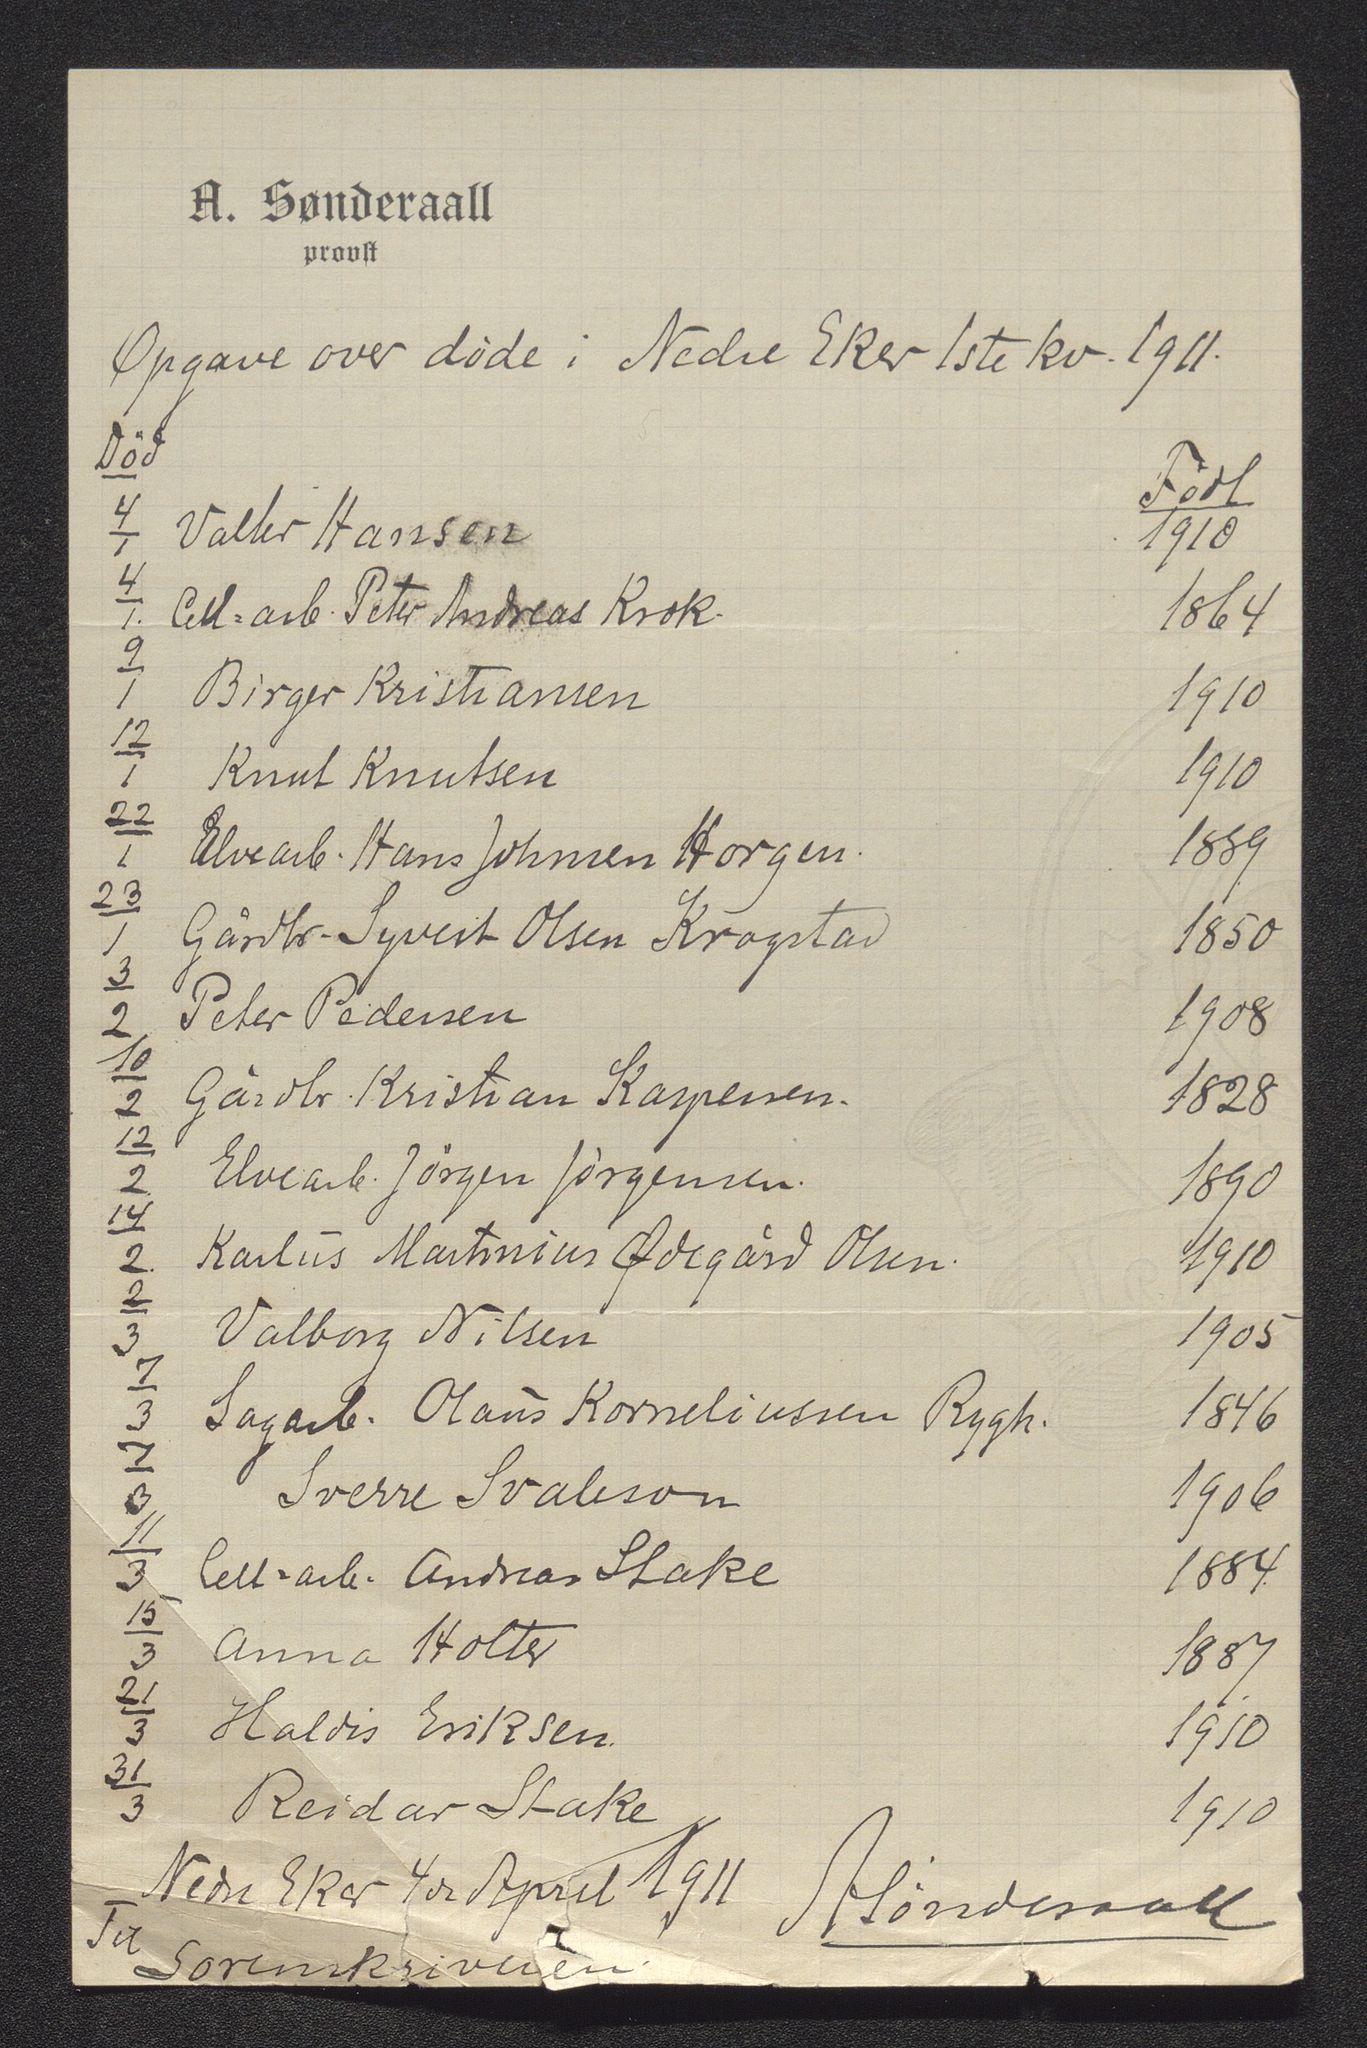 A. Sønderaall
provst
Opgave over døde i Nedre Eker 1ste kv. 1911.
Död
Födt
4/1 Valter Hansen 1910
4/1. Cell=arb. Peter Andreas Krok. 1864
9/1 Birger Kristiansen 1910
12/1 Knut Knutsen 1910
22/1 Elvearb. Hans Johnsen Horgen. 1889
23/1 Gårdbr. Syvert Olsen Krogstad 1850
3/2 Peter Pedersen 1908
10/2 Gårdbr. Kristian Kaspersen. 1828
12/2 Elvearb. Jörgen Jörgensen. 1890
14/2. Karlus Martinius Ødegård Olsen. 1910
2/3 Valborg Nilsen 1905
7/3 Sagarb. Olaus Korneliussen Rygh. 1846
7/3 Sverre Svaleson 1906
11/3 Cell=arb. Andreas Stake 1884
15/3 Anna Holter 1887
21/3 Haldis Eriksen. 1910
31/3 Reidar Stake 1910
Nedre Eker 4de April 1911 ASönderaall
Til
Sorenskriveren.